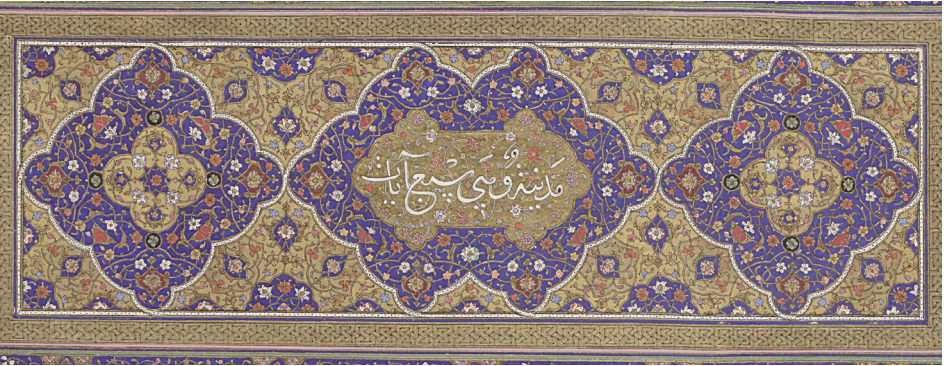 مدنية وهي سبع آيات